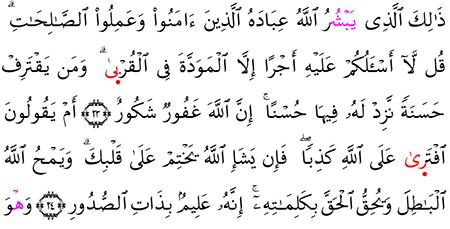 ذَٰلِكَ ٱلَّذِى يَبْشُرُ ٱللَّهُ عِبَادَهُ ٱلَّذِينَ ءَامَنُوا۟ وَعَمِلُوا۟ ٱلصَّـٰلِحَـٰتِ ۗ
قُل لَّآ أَسْـَٔلُكُمْ عَلَيْهِ أَجْرًا إِلَّا ٱلْمَوَدَّةَ فِى ٱلْقُرْبىٰ ۗ وَمَن يَقْتَرِفْ
حَسَنَةً نَّزِدْ لَهُۥ فِيهَا حُسْنًا ۚ إِنَّ ٱللَّهَ غَفُورٌ شَكُورٌ ﴿٢٣﴾ أَمْ يَقُولُونَ
ٱفْتَرىٰ عَلَى ٱللَّهِ كَذِبًا ۖ فَإِن يَشَإِ ٱللَّهُ يَخْتِمْ عَلَىٰ قَلْبِكَ ۗ وَيَمْحُ ٱللَّهُ
ٱلْبَـٰطِلَ وَيُحِقُّ ٱلْحَقَّ بِكَلِمَـٰتِهِۦٓ ۚ إِنَّهُۥ عَلِيمٌۢ بِذَاتِ ٱلصُّدُورِ ﴿٢٤﴾ وَهْوَ